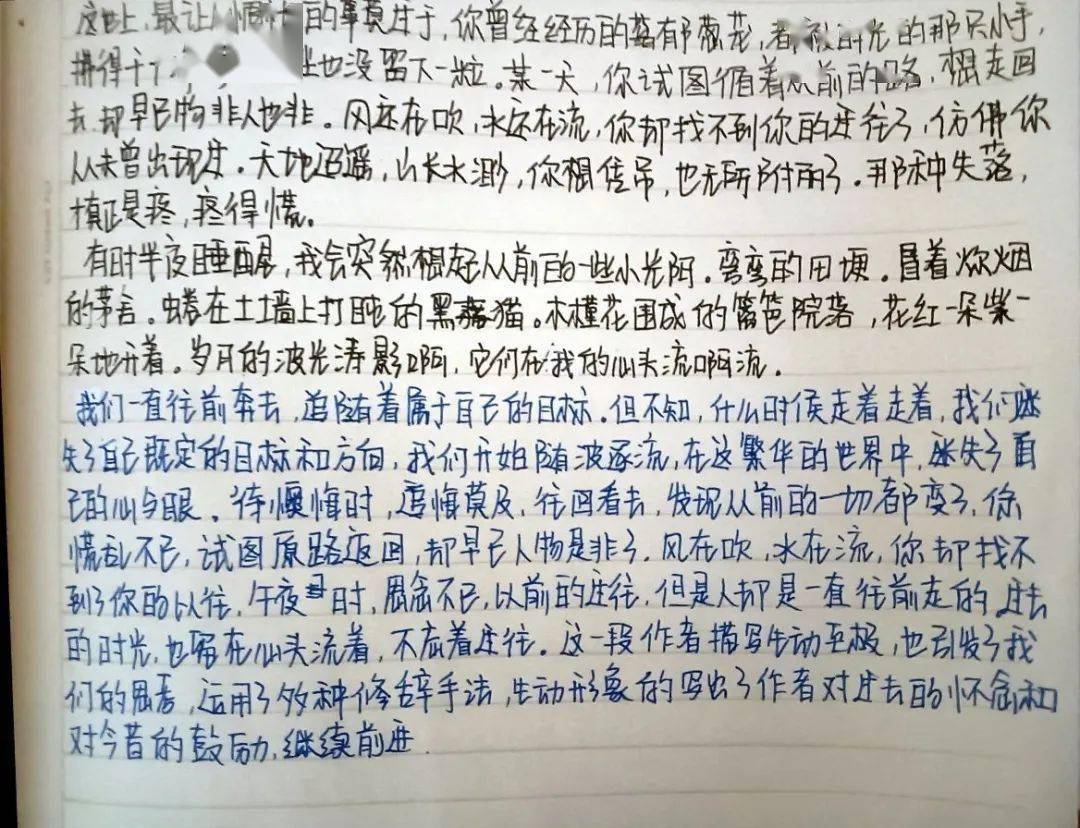 这世上,最让人惆怅的事莫过于,你曾经经历的葱郁葱茏,都被时光的那只小手,
掸得干干 尘也没留下一粒。某一天,你试图循着从前的路,想走回
去,却早已物非人也非。风还在吹,水还在流,你却找不到你的过往了,仿佛你
从未曾出现过。天地迢遥,山长水渺,你想凭吊,也无所附丽了。那种失落,
真正是疼,疼得慌。
有时半夜睡醒,我会突然想起从前的一些小光阴。弯弯的田埂。冒着炊烟
的茅舍。蜷在土墙上打盹的黑猫。木槿花围成的篱笆院落,花红一朵紫一
朵地开着。岁月的波光涛影啊,它们在我的心头流啊流。
我们一直往前奔去,追随着属于自己的目标。但不知,什么时侯走着走着,我们迷
失了自己既定的目标和方向,我们开始随波逐流,在这繁华的世界中,迷失了自
己的心与眼。待懊悔时,追悔莫及,往回看去,发现从前的一切都变了,你
慌乱不已,试图原路返回,却早已人物是非了。风在吹,水在流,你却找不
到了你的以往,午夜时,思念不已,以前的过往,但是人却是一直往前走的,过去
的时光,也留在心头流着,不忘着过往。这一段作者描写生动至极,也引发了我
们的思考,运用了多种修辞手法,生动形象的写出了作者对过去的怀念和
对今昔的鼓励,继续前进.